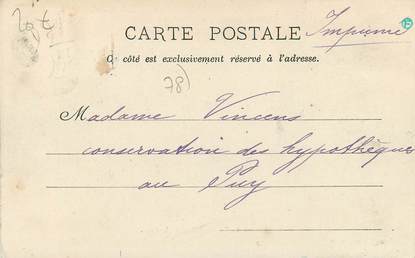 CARTE POSTALE
Imprimé
Ce côté est exclusivement réservé à l'adresse.
78)
Madame Vincens
conservation des hypothèques
au Puy